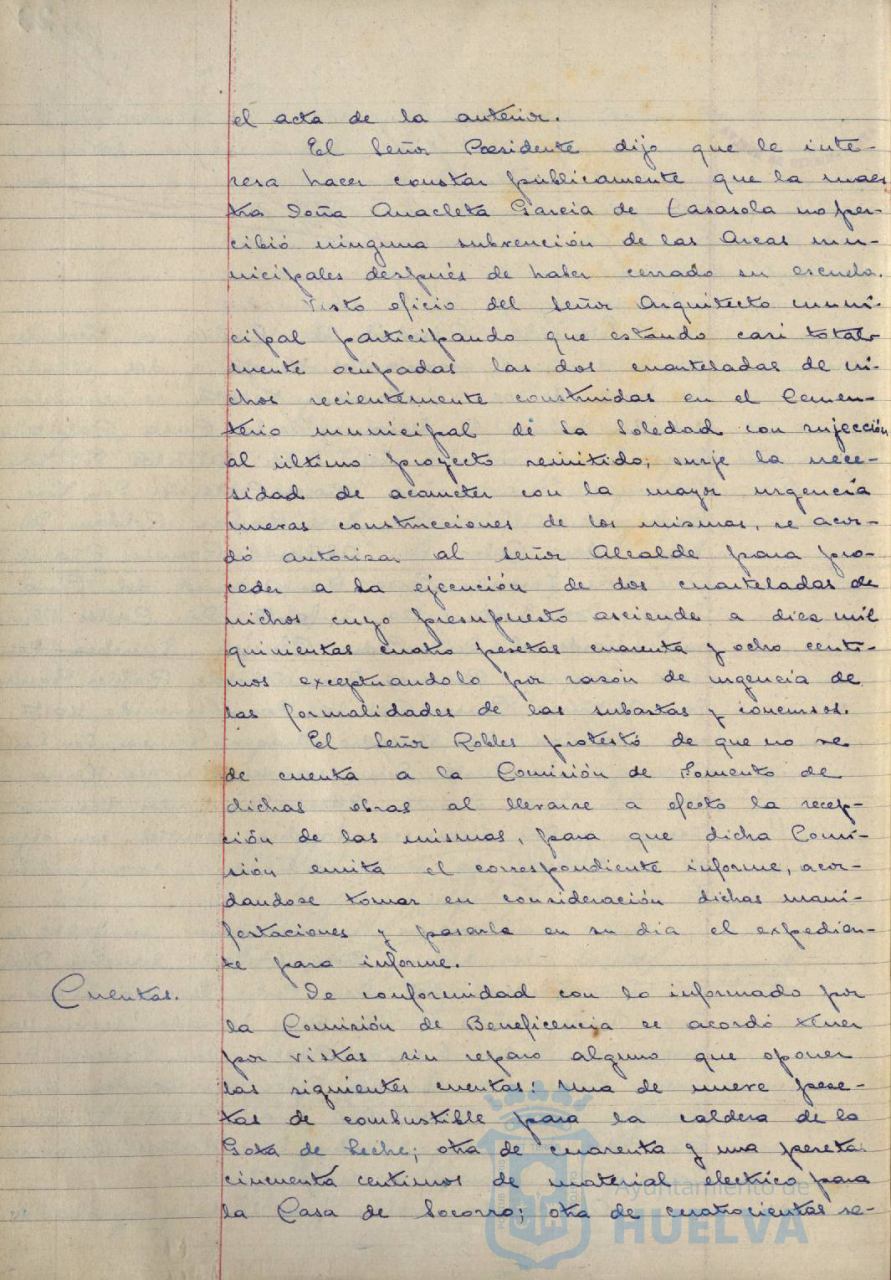 el acta de la anterior.
El Señor Presidente dijo que le inte-
resa hacer constar públicamente que la maes
tra Doña Anacleta García de Casasola no per-
cibió ninguna subvención de las Arcas mu-
nicipales después de haber cerrado su escuela.
Visto oficio del Señor Arquitecto muni-
cipal participando que estando casi total-
mente ocupadas las dos cuarteladas de ni-
chos recientemente construidas en el Cemen-
terio municipal de la Soledad con sujección
al último proyecto remitido, surje la nece-
sidad de acometer con la mayor urgencia
nuevas construcciones de los mismos, se acor-
dó autorizar al Señor Alcalde para pro-
ceder a la ejecución de dos cuarteladas de
nichos cuyo presupuesto asciende a diez mil
quinientas cuatro pesetas cuarenta y ocho centi-
mos exceptuandolo por razón de urgencia de
las formalidades de las subastas y concursos.
El Señor Robles protestó de que no se
de cuenta a la Comisión de Fomento de
dichas obras al llevarse a efecto la recep-
ción de las mismas, para que dicha Comi-
sión emita el correspondiente informe, acor-
dandose tomar en consideración dichas mani-
festaciones y pasarla en su dia el expedien-
te para informe.
Cuentas.
De conformidad con lo informado por
la Comisión de Beneficencia se acordó tener
por vistas sin reparo alguno que oponer
las siguientes cuentas: Una de nueve pese-
tas de combustible para la caldera de la
Gota de Leche; otra de cuarenta y una peseta
cincuenta centimos de material electrico para
la Casa de Socorro; otra de cuatrocientas se-
Ayuntamiento de
HUELVA